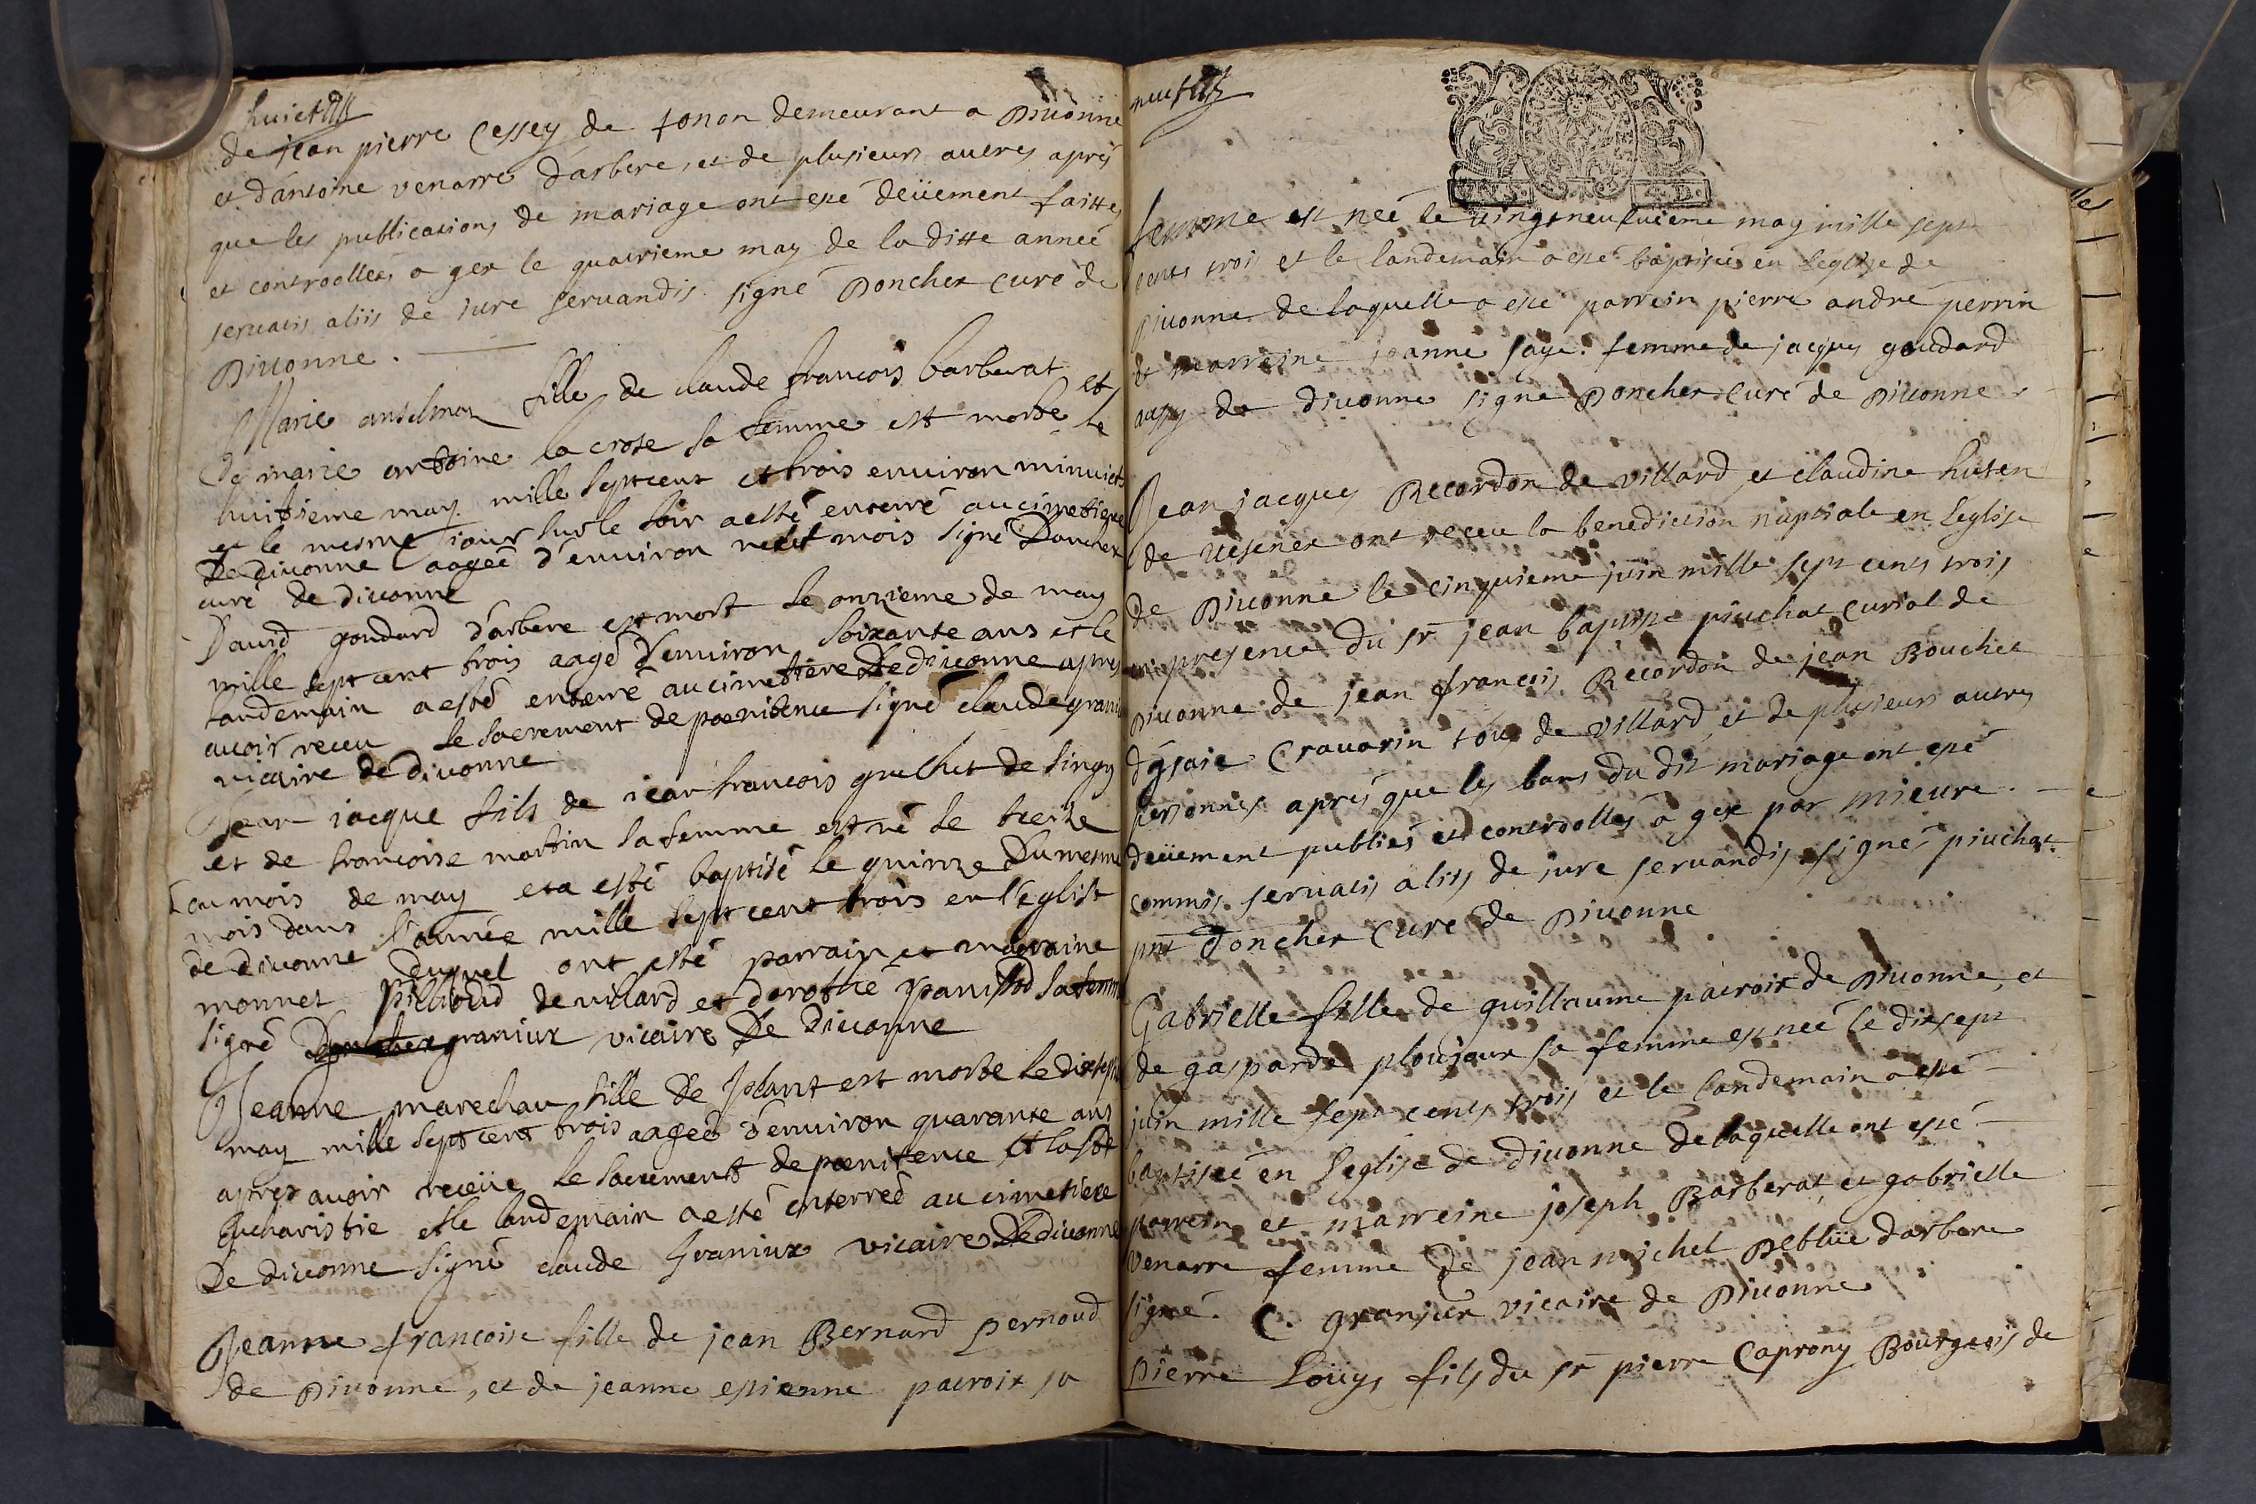 huict
de jean pierre Cessey de tonon demeurant a Divonne
et d'antoine venarre d'arbere, et de plusieurs autres aprés
que les publications de mariage ont esté deüement faittes
et controollées a gex le quatrieme may de la ditte année
servatis aliis de iure servandis. signé Doncher Curé de
Divonne.
Marie anselmoz fille de claude francois barberat et
De marie antoine la croze sa femme est morte le
huitieme may mille sept cent et trois environ minuict
et le mesme iour sur le soir a esté enterré au cimetiere
De divonne aagée d'environ neuf mois signé Doncher
curé de divonne
David goudard d'arbere est mort le onzieme de may
mille sept cent trois aagé d'environ soixante ans et le
landemain a esté enterré au cimettiere De divonne apres
avoir receu le sacrement de poenitence signé claude graniux
vicaire de divonne
Jean iacque fils de iean francois gruchet de singy
et de francoise martin sa femme est né le treize
du mois de may et a esté baptisé le quinze du mesme
mois dans l'année mille sept cent trois en l'eglise
de divonne duquel ont esté parrain et marraine
monnet de vilard et dorothé panissod sa femme
signé Doncher graniux vicaire De Divonne
Jeanne marechau fille De est morte le dixsept
may mille sept cent trois aagée d'environ quarante ans
apres avoir receüe le sacrement de poenitence et la ste
Eucharistie et le landemain a esté enterreé au cimetiere
De divonne signé claude Graniux vicaire De divonne
Jeanne francoise fille de jean Bernard Pernoud
de Divonne, et de jeanne estienne patroix sa
neuf
femme est neé le vingt neufvieme may mille sept
cents trois et le landemain a esté baptiseé en l'eglise de
Divonne de laquelle a esté parrein pierre andré perrin
et marreine jeanne saye femme de jacques goudard
aussy de divonne signé Doncher Curé de Divonne
Jean jacques Recordon de villard et claudine huten
de vesenex ont receu la benediction nuptiale en l'eglise
de Divonne le cinquieme juin mille sept cents trois
en presence du sr jean baptiste piuchat Curial de
Divonne de jean francois Recordon de jean Bouchet
d'esaie Cravarin tous de villard, et de plusieurs autres
personnes aprés que les bans du dit mariage ont esté
deüement publiés et controollés a gex par mieure
commis. servatis aliis de jure servandis signés piuchat
pnt Doncher Curé de Divonne
Gabrielle fille de guillaume patroix de Divonne, et
de gasparde ploujoux sa femme est neé le dixsept
juin mille sept cents trois et le landemain a esté
baptiseé en l'eglise de divonne de laquelle ont esté
parrein et marreine joseph Barberat, et gabrielle
venarre femme de jean michel Deblüe d'arbere
signé. C. granjux vicaire de Divonne
Pierre Loüys fils du sr pierre Caprony Bourgeois de